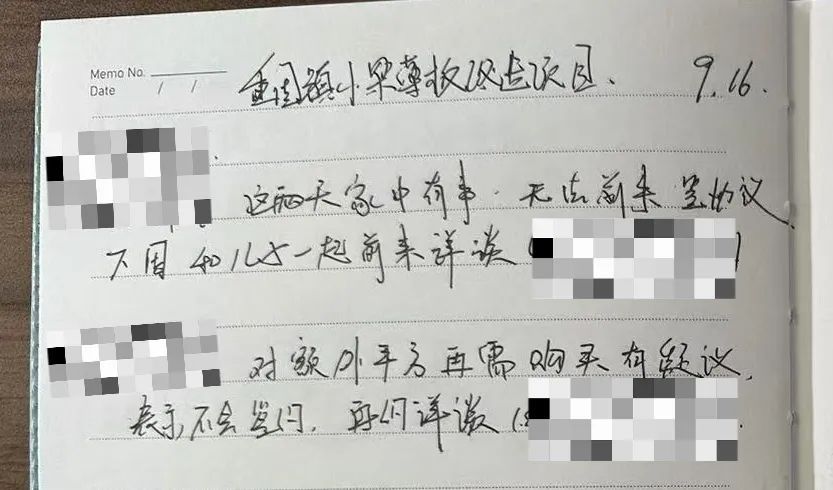 Memo No.
Date / /
重固镇小梁薄板改造项目. 9.16.
这两天家中有事. 无法前来签协议.
下周和儿女一起前来详谈 ( )
对额外平方再需购买有疑议,
表示不会签约. 再行详谈 (